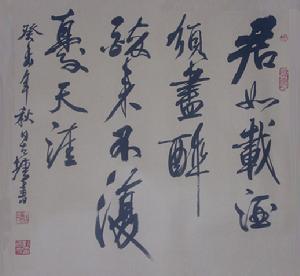 君如載酒
須盡醉
醉来不復
憂天涯
癸未年秋月書